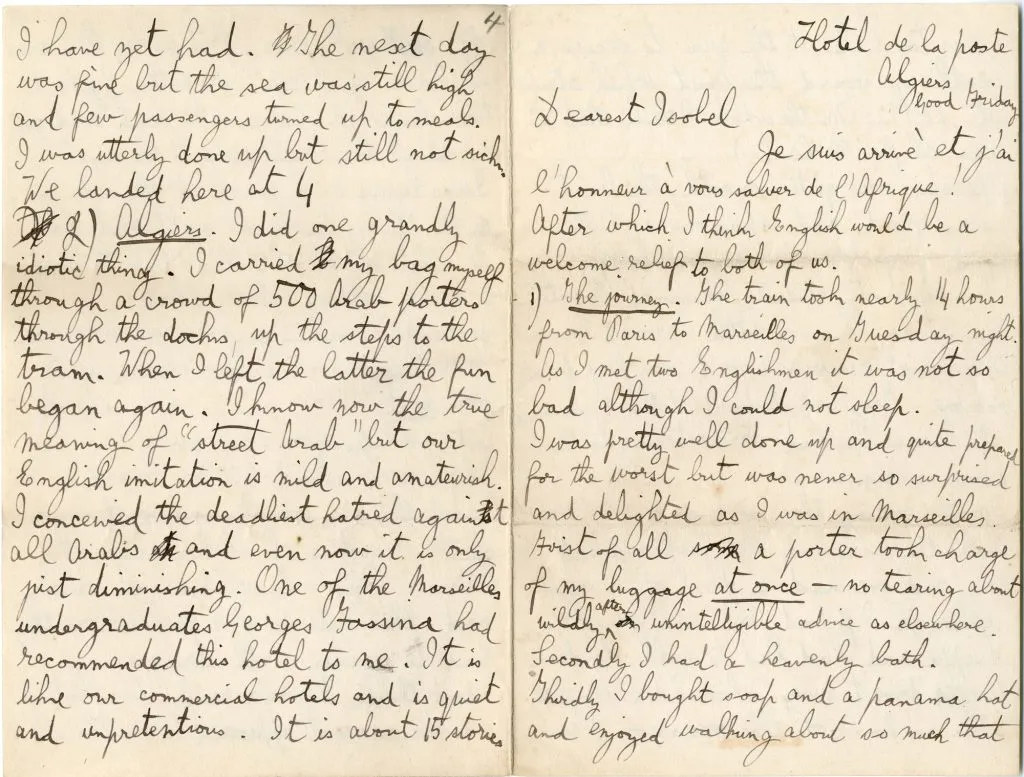 4
I have yet had. The next day
was fine but the sea was still high
and few passengers turned up to meals.
I was utterly done up but still not sick.
We landed here at 4
2) Algiers. I did one grandly
idiotic thing. I carried my bag myself
through a crowd of 500 Arab porters
through the docks, up the steps to the
tram. When I left the latter the fun
began again. I know now the true
meaning of "street Arab" but our
English imitation is mild and amateurish.
I conceived the deadliest hatred against
all Arabs and even now it is only
just diminishing. One of the Marseilles
undergraduates Georges Fassina had
recommended this hotel to me. It is
like our commercial hotels and is quiet
and unpretentious. It is about 15 stories
Hotel de la poste
Algiers
Good Friday
Dearest Isobel
Je suis arrivè et j'ai
l'honneur à vous saluer de l'Afrique!
After which I think English would be a
welcome relief to both of us.
1) The journey. The train took nearly 14 hours
from Paris to Marseilles on Tuesday night.
As I met two Englishmen it was not so
bad although I could not sleep.
I was pretty well done up and quite prepared
for the worst but was never so surprised
and delighted as I was in Marseilles.
First of all a porter took charge
of my luggage at once – no tearing about
wildly after unintelligible advice as elsewhere.
Secondly I had a heavenly bath.
Thirdly I bought soap and a panama hat
and enjoyed walking about so much that